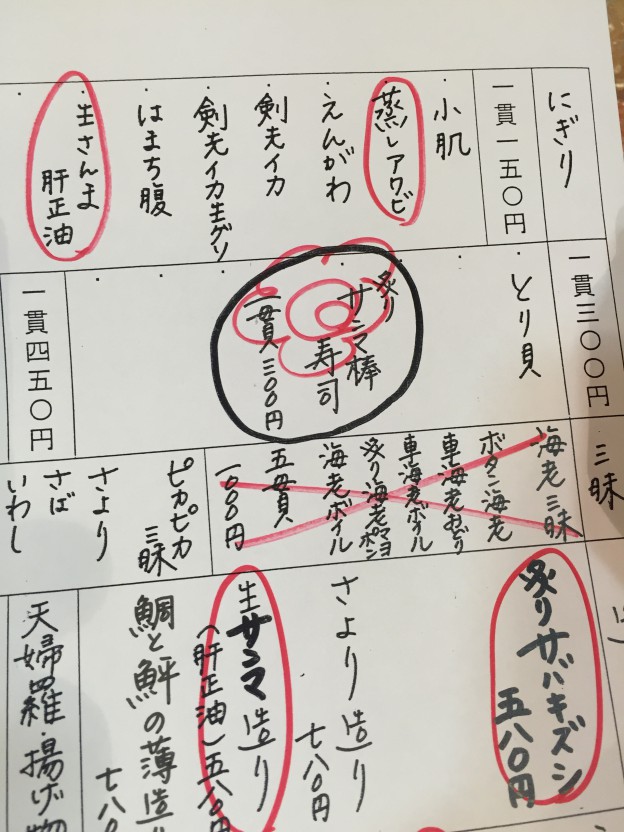 にぎり
一貫一五〇円
小肌
蒸しアワビ
えんがわ
剣先イカ
剣先イカ生ゲソ
はまち腹
生さんま
肝正油
一貫三〇〇円
とり貝
炙り
サンマ棒
寿司
一貫三〇〇円
一貫四五〇円
三昧
海老三昧
ボタン海老
車海老おどり
車海老ボイル
炙り海老マヨポン
海老ボイル
五貫
一〇〇〇円
ピカピカ
三昧
さより
さば
いわし
造り
炙りサバキズシ
五八〇円
さより造り
七八〇円
生サンマ造り
(肝正油)五八〇円
鯛と鮃の薄造り
七八〇
天婦羅・揚げ物